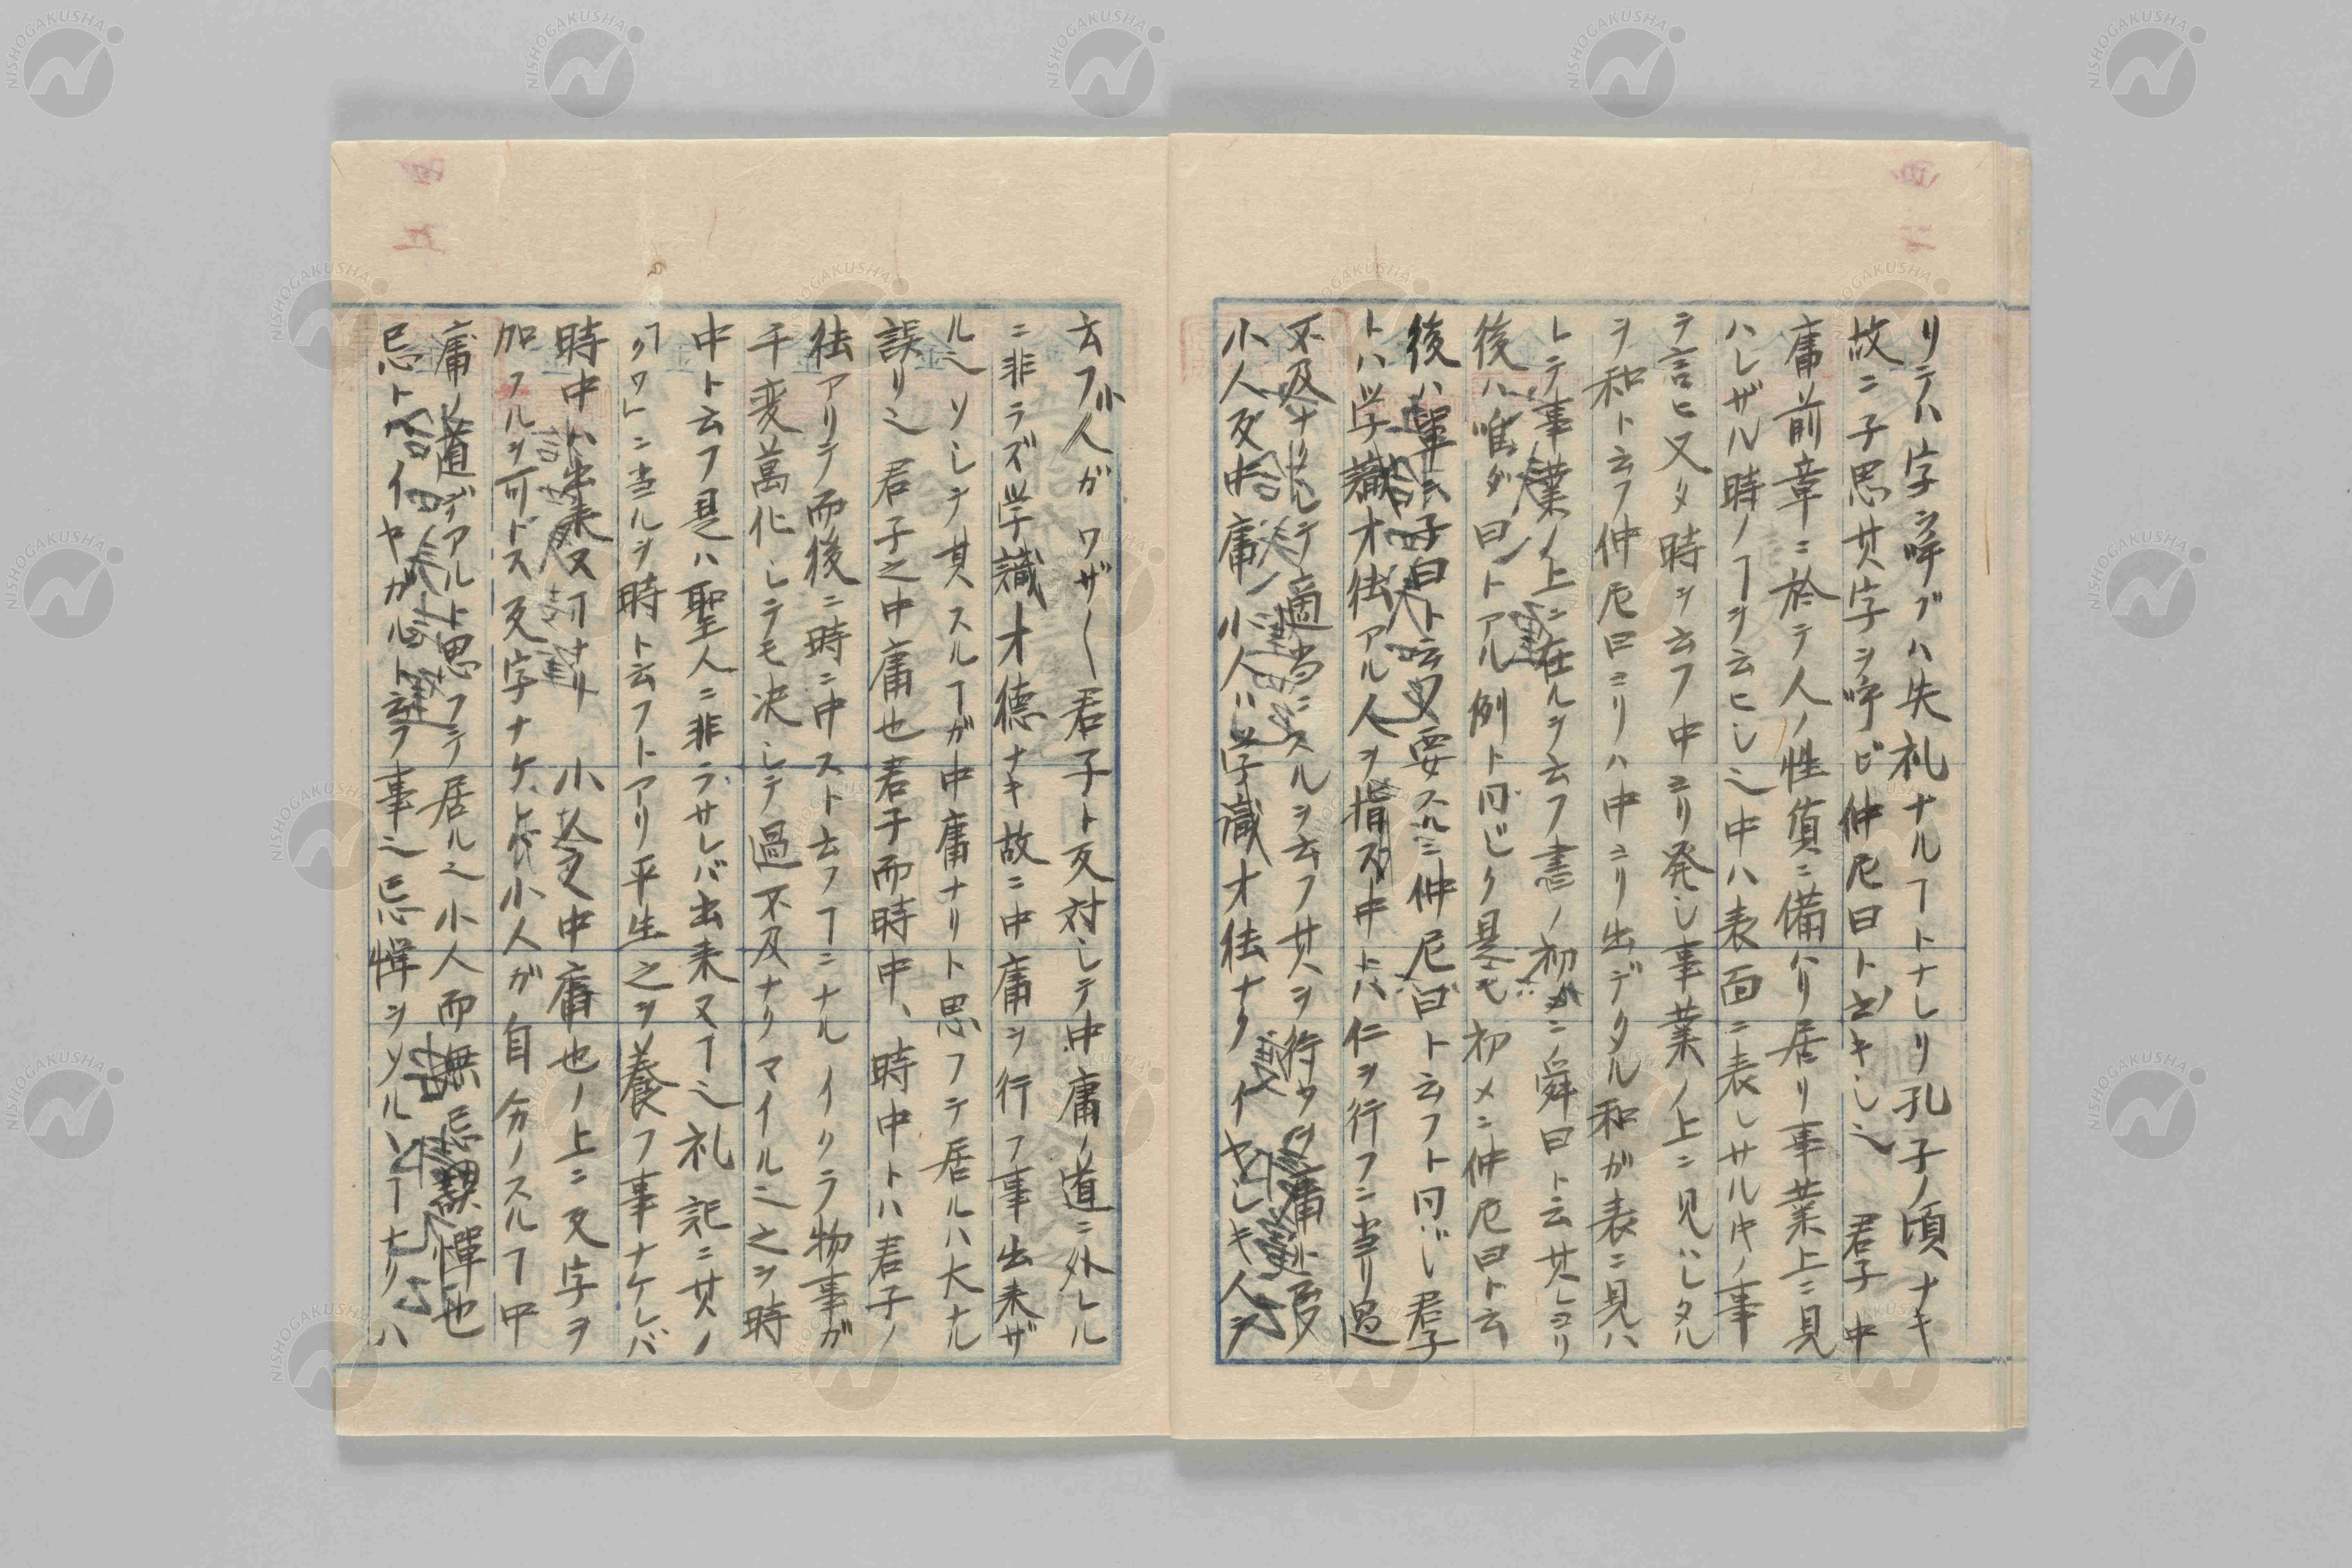 リテハ字ヲ呼ブハ失礼ナルヿトナレリ孔子ノ頃ナキ
故ニ子思其字ヲ呼ビ仲尼曰ト云キシ也 君子中
庸前章ニ於テ人ノ性質ニ備ハリ居リ事業上ニ見
ハレザル時ノヿヲ云ヒシ也中ハ表面ニ表レサル中ノ事
テ言ヒ又タ時ヲ云フ中ヨリ発シ事業ノ上ニ見ハレタル
ヲ和ト云フ仲尼曰ヨリハ中ヨリ出デタル和ガ表ニ見ハ
レテ事業ノ上ニ在ルヲ云フ書ノ初メニ舜曰ト云其レヨリ
後ハ唯ダ曰トアル例ト同ジク是モ初メニ仲尼曰ト云
後ハ単ニ子曰ト云又要スルニ仲尼曰ト云フト同ジ君子
トハ学識才徳アル人ヲ指ス中トハ仁ヲ行フニ当リ過
不及ナクシテ適当ニスルヲ云フ其ヲ行
小人反中庸 小人ハ学識才徳ナクイヤシキ人ヲ
云フ小人ガワザ〱君子ト反対シテ中庸ノ道ニ外レル
ニ非ラズ学識才徳ナキ故ニ中庸ヲ行フ事出来ザ
ル也ソシテ其スルヿガ中庸ナリト思フテ居ルハ大ナル
誤リ也 君子之中庸也君子而時中、時中トハ君子ノ
徳アリテ而後ニ時ニ中スト云フヿニナル イクラ物事ガ
千変萬化シテモ決シテ過不及ナクマイル也之ヲ時
中ト云フ是ハ聖人ニ非ラサレバ出来ヌヿ也礼記ニ其ノ
ヿクワ」ニ当ルヲ時ト云フトアリ平生之ヲ養フ事ナケレバ
時中ハ出来ヌヿナリ 小人之中庸也ノ上ニ反字ヲ
加フルヲ可トス反字ナケレバ小人ガ自分ノスルヿ中
庸ノ道デアルト思フテ居ル也小人而無忌憚也
忌トイヤガルト云フ事也忌憚ヲソルヽヿナリハ